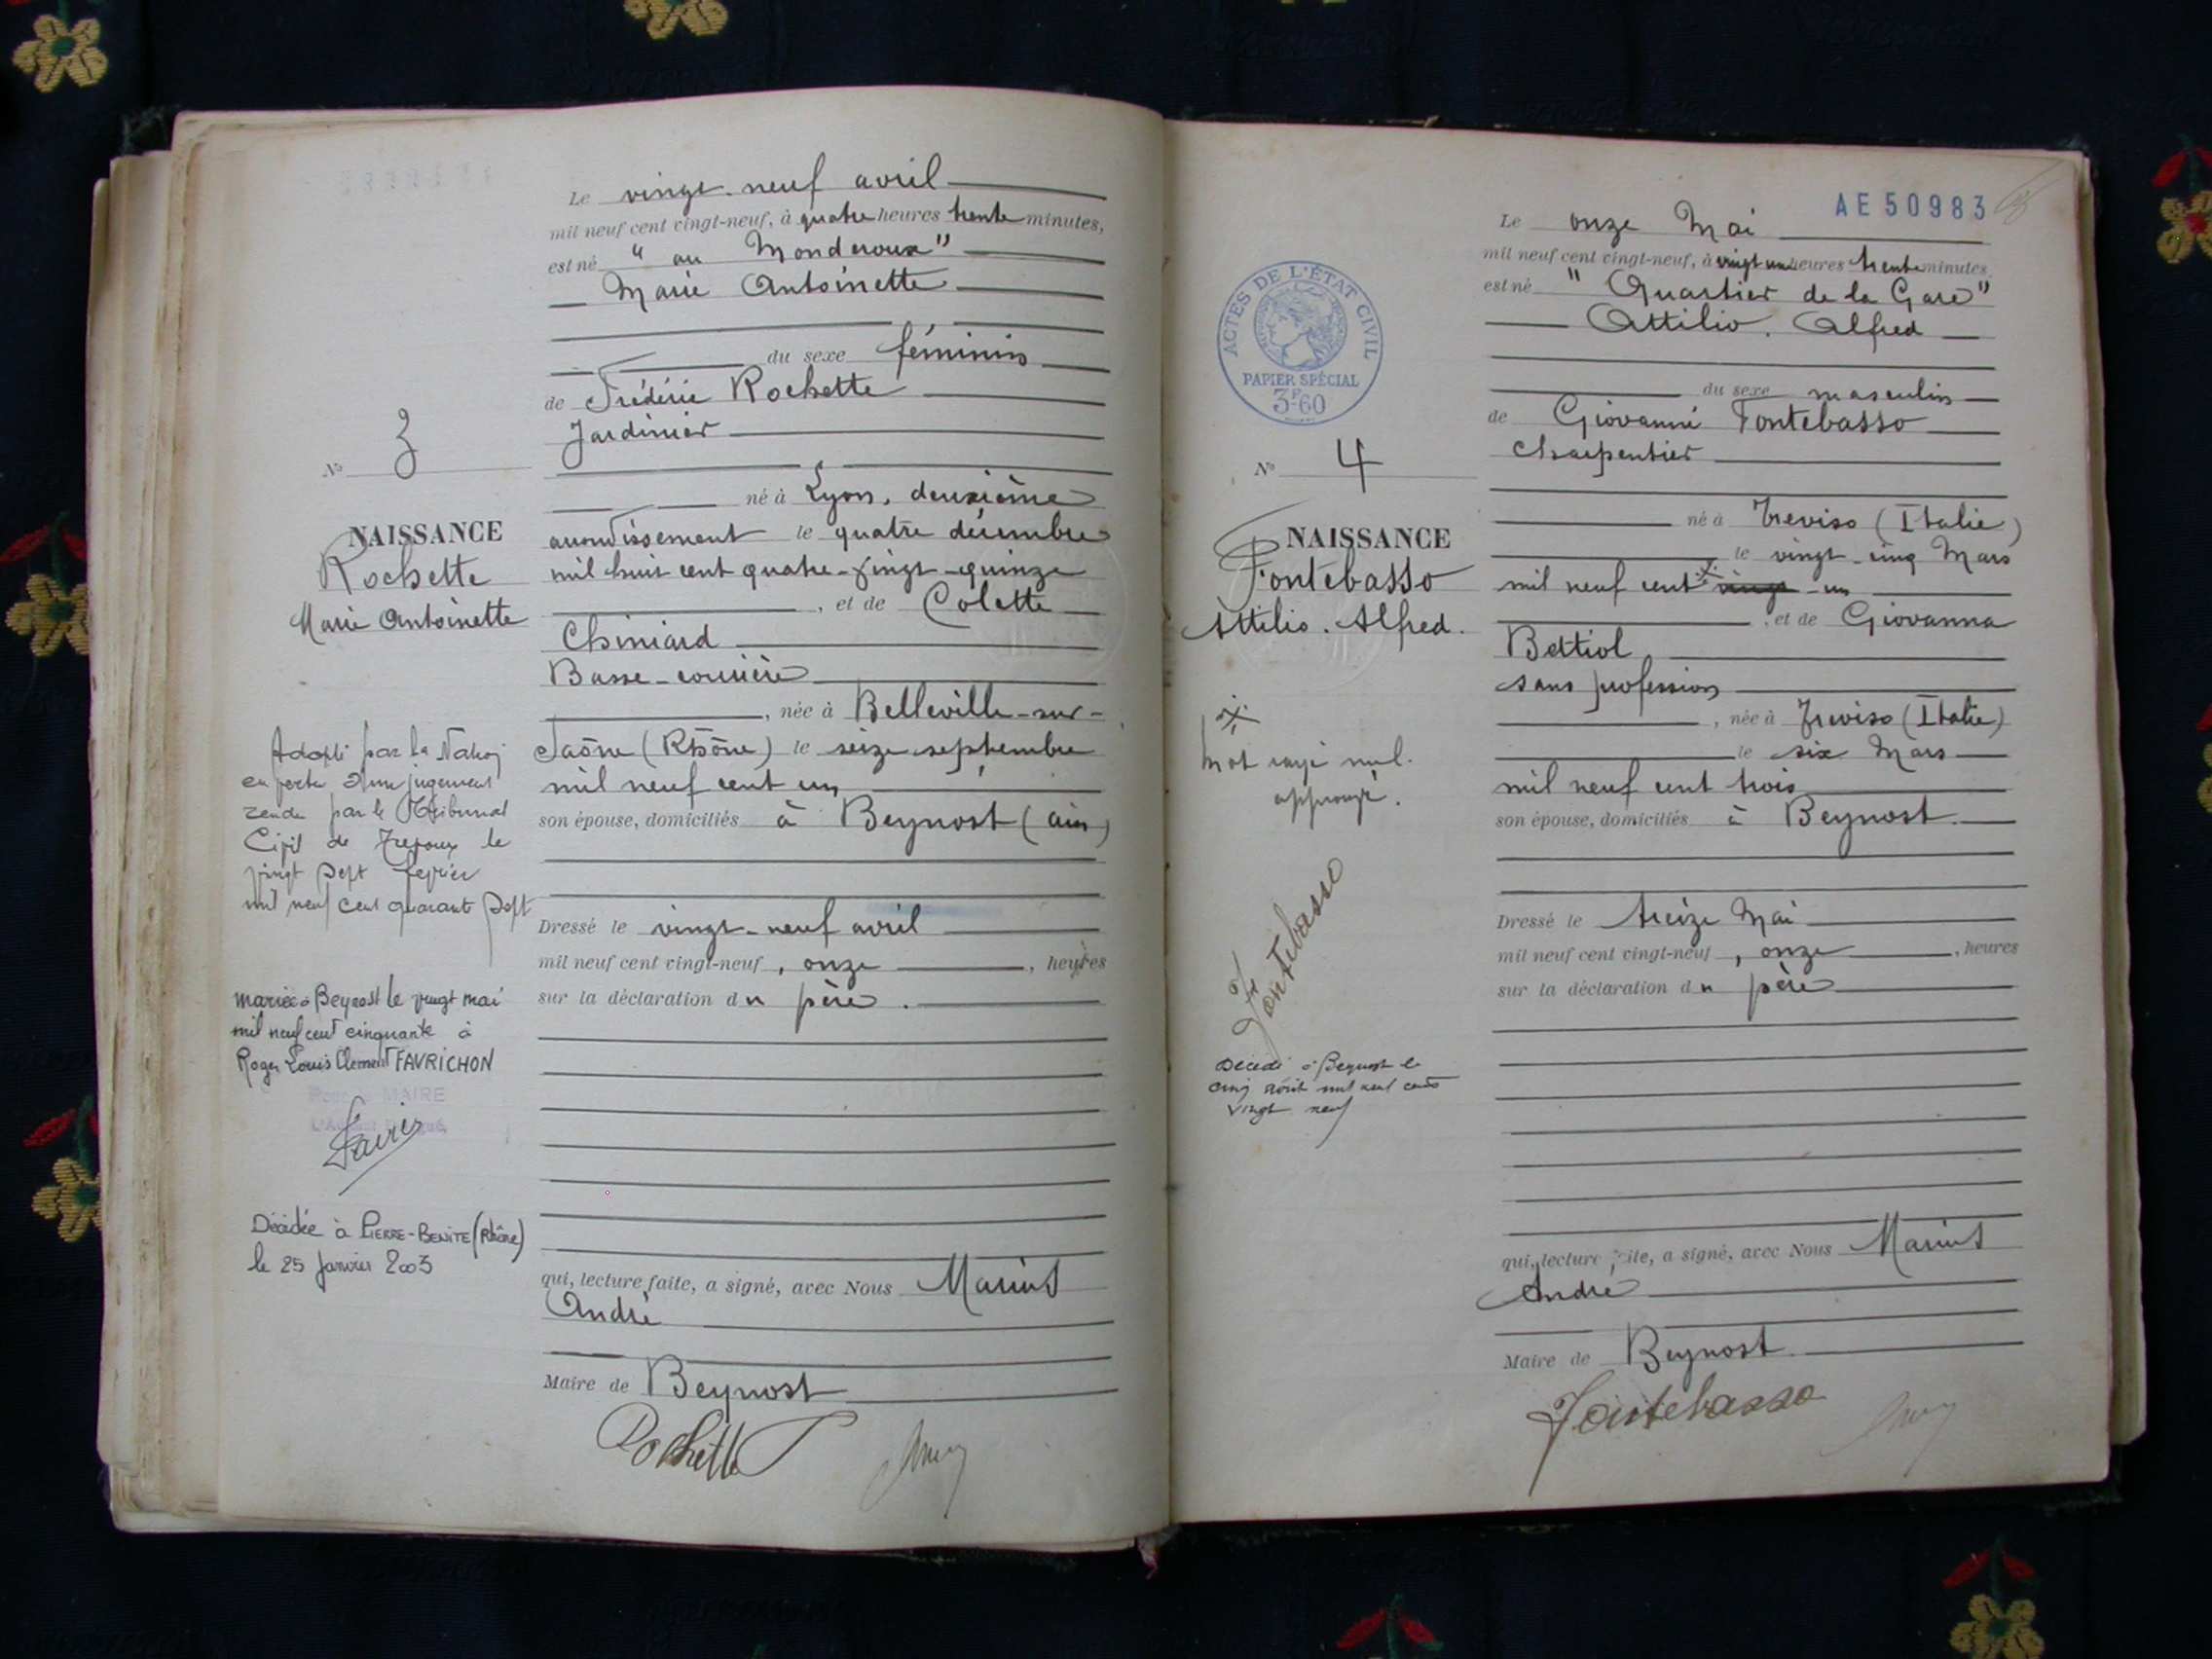 Le vingt-neuf avril
mil neuf cent vingt-neuf, à quatre heures trente minutes,
est né " au Monderoux"
Marie Antoinette
du sexe féminin
de Frédéric Rochette
Jardinier
né à Lyon, deuxième
arrondissement le quatre décembre
mil huit cent quatre-vingt-quinze
, et de Colette
Chiniard
Basse-courrière
, née à Belleville-sur-
Saône (Rhône) le seize septembre
mil neuf cent un
son épouse, domiciliés à Beynost (ain)
Dressé le vingt-neuf avril
mil neuf cent vingt-neuf, onze , heures
sur la déclaration du père.
qui, lecture faite, a signé, avec Nous Marius
André
Maire de Beynost
Rochette
No 3
NAISSANCE
Rochette
Marie Antoinette
Adopté par la Nation
en vertu d'un jugement
rendu par le Tribunal
Civil de Trevoux le
vingt sept fevrier
mil neuf cent quarante sept
mariée à Beynost le vingt mai
mil neuf cent cinquante à
Roger Louis Clement FAVRICHON
MAIRE
Décédée à PIERRE-BENITE (Rhône)
le 25 janvier 2003
AE 50983
Le onze Mai
mil neuf cent vingt-neuf, à vingt un heures trente minutes
est né " Quartier de la Gare"
Attilio. Alfred
du sexe masculin
de Giovanni Fontebasso
charpentier
né à Treviso (Italie)
le vingt-cinq Mars
mil neuf cent vingt-un
, et de Giovanna
Bettiol
sans profession
, née à Treviso (Italie)
le six Mars
mil neuf cent trois
son épouse, domiciliés à Beynost.
Dressé le treize Mai
mil neuf cent vingt-neuf, onze , heures
sur la déclaration du père
qui, lecture faite, a signé, avec Nous Marius
André
Maire de Beynost.
Fontebasso
ACTES DE L'ÉTAT CIVIL
PAPIER SPÉCIAL
3F60
No 4
NAISSANCE
Fontebasso
Attilio. Alfred.
Mot rayé nul.
approuvé.
Fontebasso
Décédé à Beynost le
cinq août mil neuf cent
vingt neuf